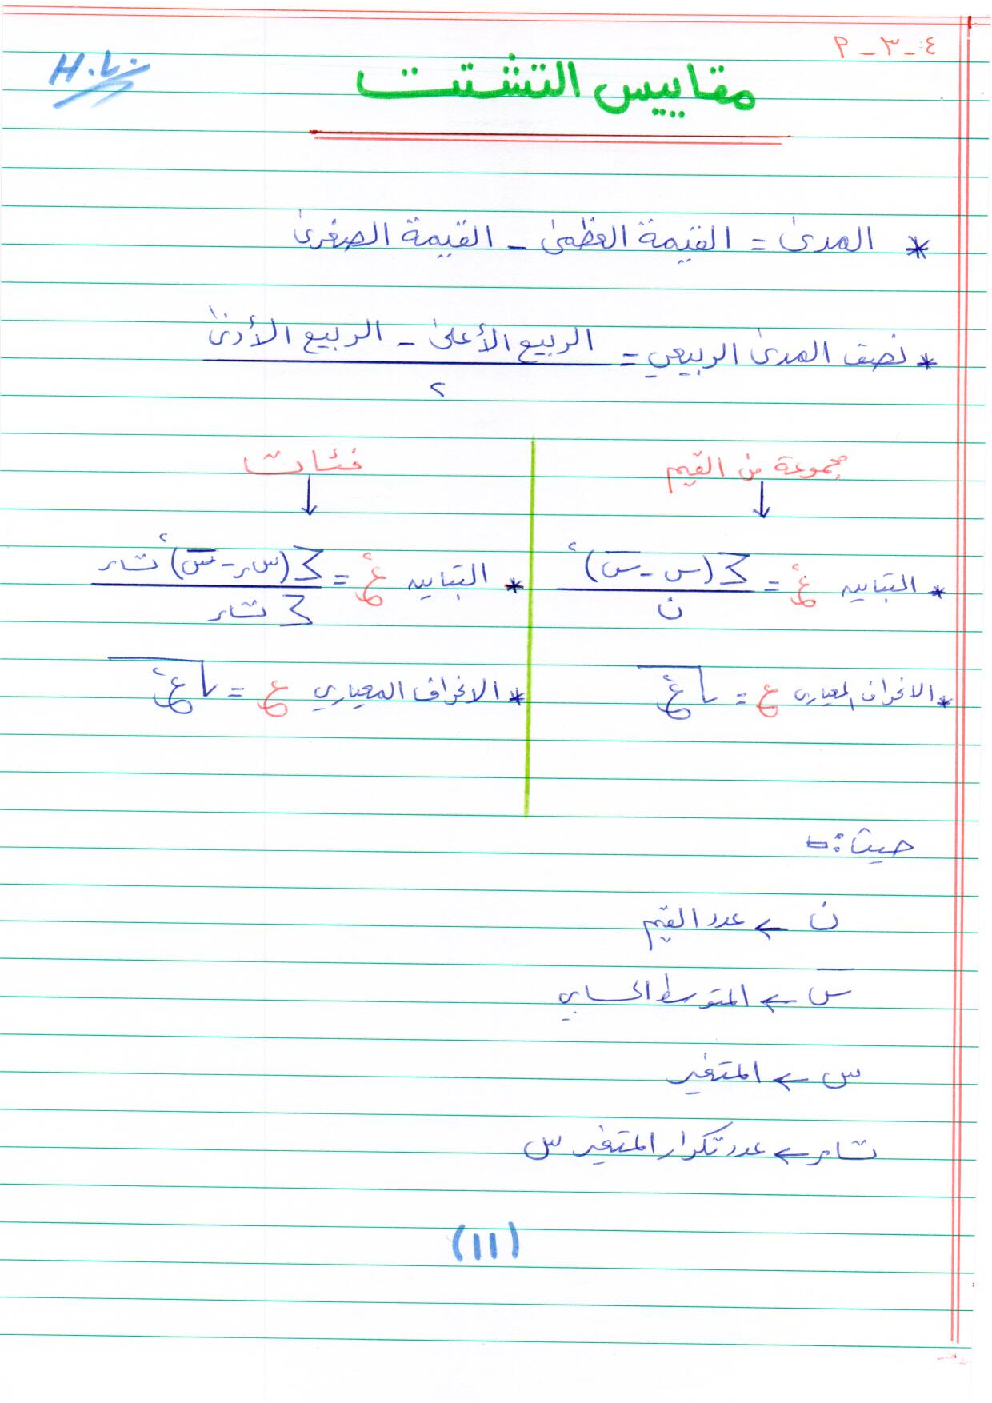 ٤-٣-٩
مقاييس التشتت
* المدى = القيمة العظمى - القيمة الصغرى
* نصف المدى الربيعي = الربيع الأعلى - الربيع الأدنى
٢
مجموعة من القيم
* التباين ع² = ∑(س - س̄)²
ن
* الانحراف المعياري ع = √ع²
فئات
* التباين ع² = ∑(سر - س̄)² تسار
∑ تسار
* الانحراف المعياري ع = √ع²
حيث :-
ن ← عدد القيم
س̄ ← المتوسط الحسابي
س ← المتغير
عدد تكرار المتغير س
(١١)